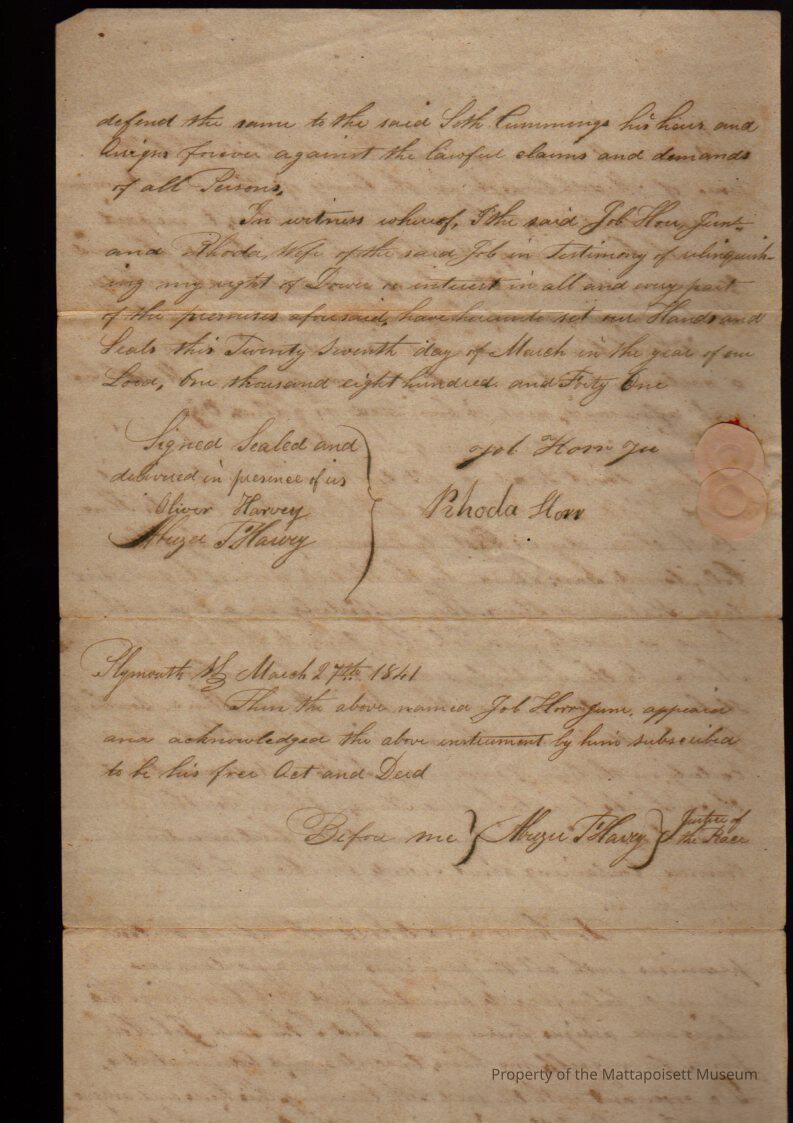 defend the same to the said Seth Cummings his heirs and
Assigns forever against the lawful claims and demands
of all Persons.
In witness whereof, I the said Job Horr Junr
and Rhoda, Wife of the said Job in Testimony of relinquish-
ing my right of Dower or interest in all and every part
of the premises aforesaid, have hereunto set our Hands and
Seals this Twenty Seventh day of March in the year of our
Lord, One thousand eight hundred and Forty One
Signed Sealed and
delivered in presence of us
Oliver Harvey
Abizer T Harvey
Job Horr Ju
Rhoda Horr
Plymouth Ss March 27th 1841
Then the above named Job Horr Junr. appeared
and acknowledged the above instrument by him subscribed
to be his free Act and Deed
Before me } Abizer T Harvey } Justice of
the Peace
Property of the Mattapoisett Museum